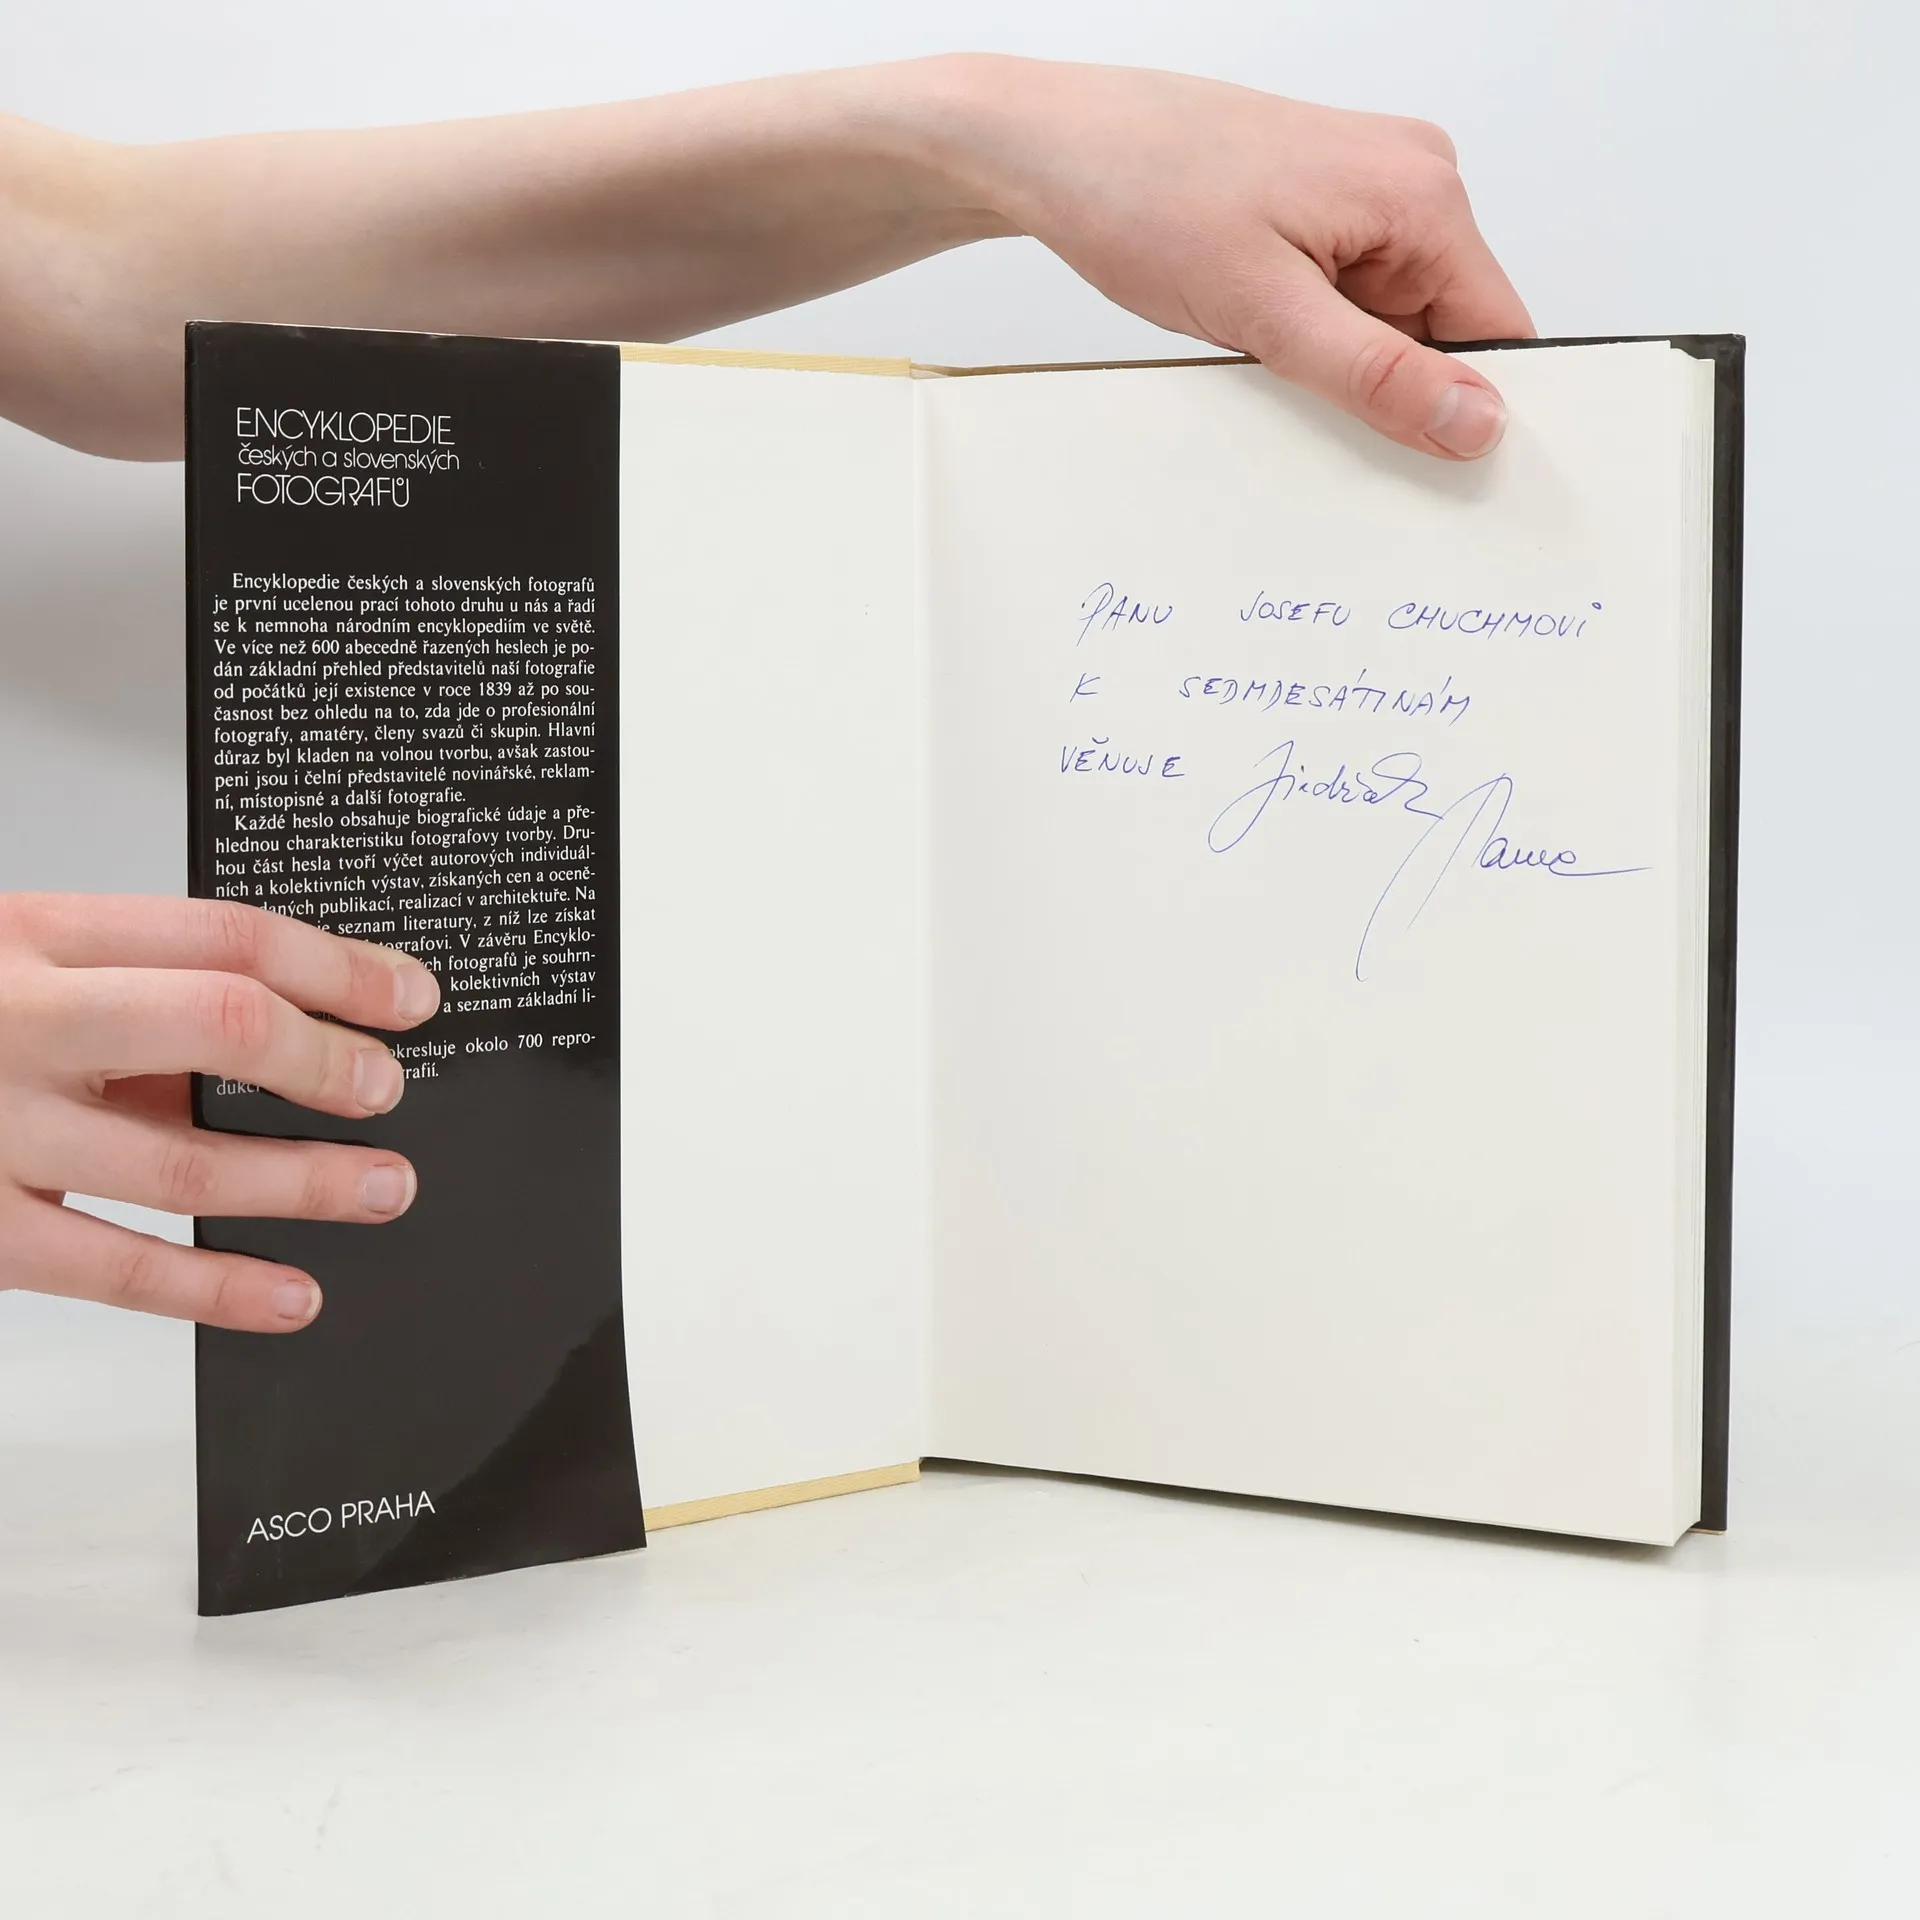 ENCYKLOPEDIE
českých a slovenských
FOTOGRAFŮ
Encyklopedie českých a slovenských fotografů
je první ucelenou prací tohoto druhu u nás a řadí
se k nemnoha národním encyklopediím ve světě.
Ve více než 600 abecedně řazených heslech je po-
dán základní přehled představitelů naší fotografie
od počátků její existence v roce 1839 až po sou-
časnost bez ohledu na to, zda jde o profesionální
fotografy, amatéry, členy svazů či skupin. Hlavní
důraz byl kladen na volnou tvorbu, avšak zastou-
peni jsou i čelní představitelé novinářské, reklam-
ní, místopisné a další fotografie.
Každé heslo obsahuje biografické údaje a pře-
hlednou charakteristiku fotografovy tvorby. Dru-
hou část hesla tvoří výčet autorových individuál-
ních a kolektivních výstav, získaných cen a oceně-
daných publikací, realizací v architektuře. Na
je seznam literatury, z níž lze získat
tografovi. V závěru Encyklo-
ch fotografů je souhrn-
kolektivních výstav
a seznam základní li-
okresluje okolo 700 repro-
dukcí rafií.
ASCO PRAHA
PANU JOSEFU CHUCHMOVI
K SEDMDESÁTINÁM
VĚNUJE